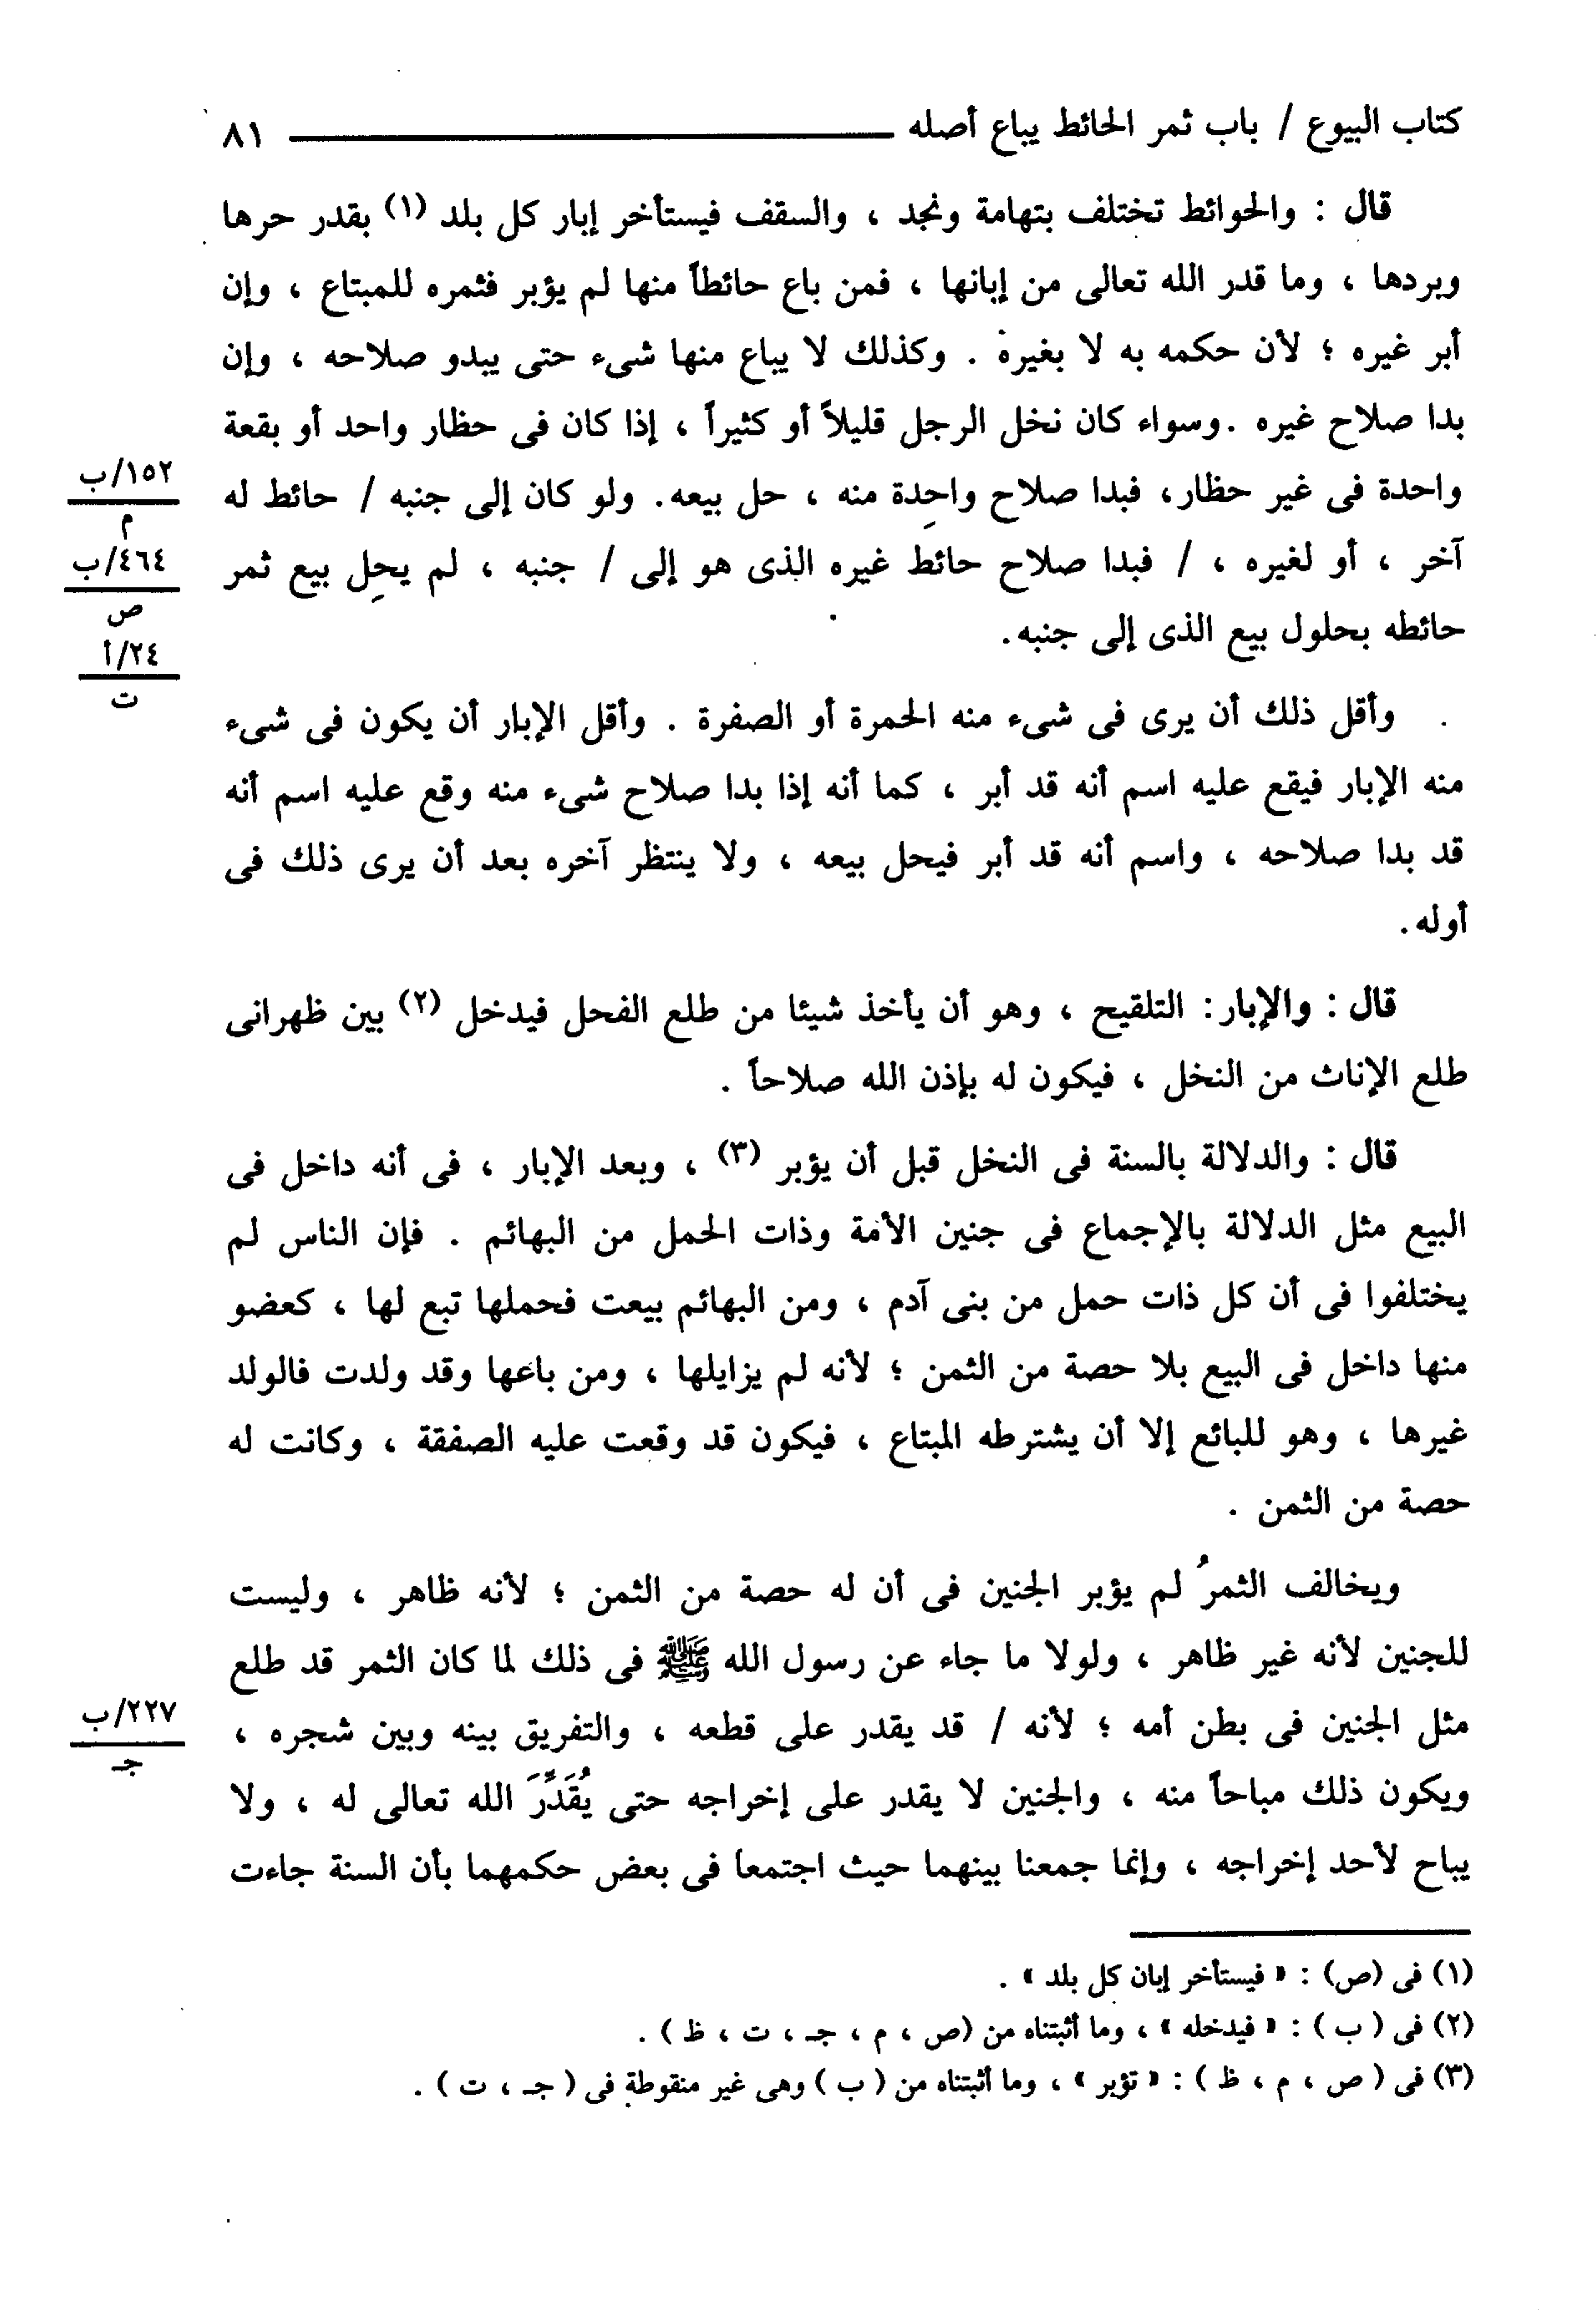 كتاب البيوع / باب ثمر الحائط يباع أصله ٨١
قال : والحوائط تختلف بتهامة ونجد ، والسقف فيستأخر إبار كل بلد (١) بقدر حرها
وبردها ، وما قدر الله تعالى من إبانها ، فمن باع حائطاً منها لم يؤبر فثمره للمبتاع ، وإن
أبر غيره ؛ لأن حكمه به لا بغيره . وكذلك لا يباع منها شىء حتى يبدو صلاحه ، وإن
بدا صلاح غيره .وسواء كان نخل الرجل قليلاً أو كثيراً ، إذا كان فى حظار واحد أو بقعة
واحدة فى غير حظار، فبدا صلاح واحدة منه ، حل بيعه. ولو كان إلى جنبه / حائط له
١٥٢/ب
م
آخر ، أو لغيره ، / فبدا صلاح حائط غيره الذى هو إلى / جنبه ، لم يحل بيع ثمر
٤٦٤/ب
ص
حائطه بحلول بيع الذى إلى جنبه.
٢٤/أ
ت
وأقل ذلك أن يرى فى شىء منه الحمرة أو الصفرة . وأقل الإبار أن يكون فى شىء
منه الإبار فيقع عليه اسم أنه قد أبر ، كما أنه إذا بدا صلاح شىء منه وقع عليه اسم أنه
قد بدا صلاحه ، واسم أنه قد أبر فيحل بيعه ، ولا ينتظر آخره بعد أن يرى ذلك فى
أوله.
قال : والإبار: التلقيح ، وهو أن يأخذ شيئا من طلع الفحل فيدخل (٢) بين ظهرانى
طلع الإناث من النخل ، فيكون له بإذن الله صلاحاً .
قال : والدلالة بالسنة فى النخل قبل أن يؤبر (٣) ، وبعد الإبار ، فى أنه داخل فى
البيع مثل الدلالة بالإجماع فى جنين الأمة وذات الحمل من البهائم . فإن الناس لم
يختلفوا فى أن كل ذات حمل من بنى آدم ، ومن البهائم بيعت فحملها تبع لها ، كعضو
منها داخل فى البيع بلا حصة من الثمن ؛ لأنه لم يزايلها ، ومن باعها وقد ولدت فالولد
غيرها ، وهو للبائع إلا أن يشترطه المبتاع ، فيكون قد وقعت عليه الصفقة ، وكانت له
حصة من الثمن .
ويخالف الثمرُ لم يؤبر الجنين فى أن له حصة من الثمن ؛ لأنه ظاهر ، وليست
للجنين لأنه غير ظاهر ، ولولا ما جاء عن رسول الله ﷺ فى ذلك لما كان الثمر قد طلع
مثل الجنين فى بطن أمه ؛ لأنه / قد يقدر على قطعه ، والتفريق بينه وبين شجره ،
٢٢٧/ب
جـ
ويكون ذلك مباحاً منه ، والجنين لا يقدر على إخراجه حتى يُقَدِّرَ الله تعالى له ، ولا
يباح لأحد إخراجه ، وإنما جمعنا بينهما حيث اجتمعا فى بعض حكمهما بأن السنة جاءت
(١) فى (ص) : « فيستأخر إبان كل بلد » .
(٢) فى ( ب ) : « فيدخله » ، وما أثبتناه من (ص ، م ، جـ ، ت ، ظ ) .
(٣) فى ( ص ، م ، ظ ) : « تؤبر » ، وما أثبتناه من ( ب ) وهى غير منقوطة فى ( جـ ، ت ) .